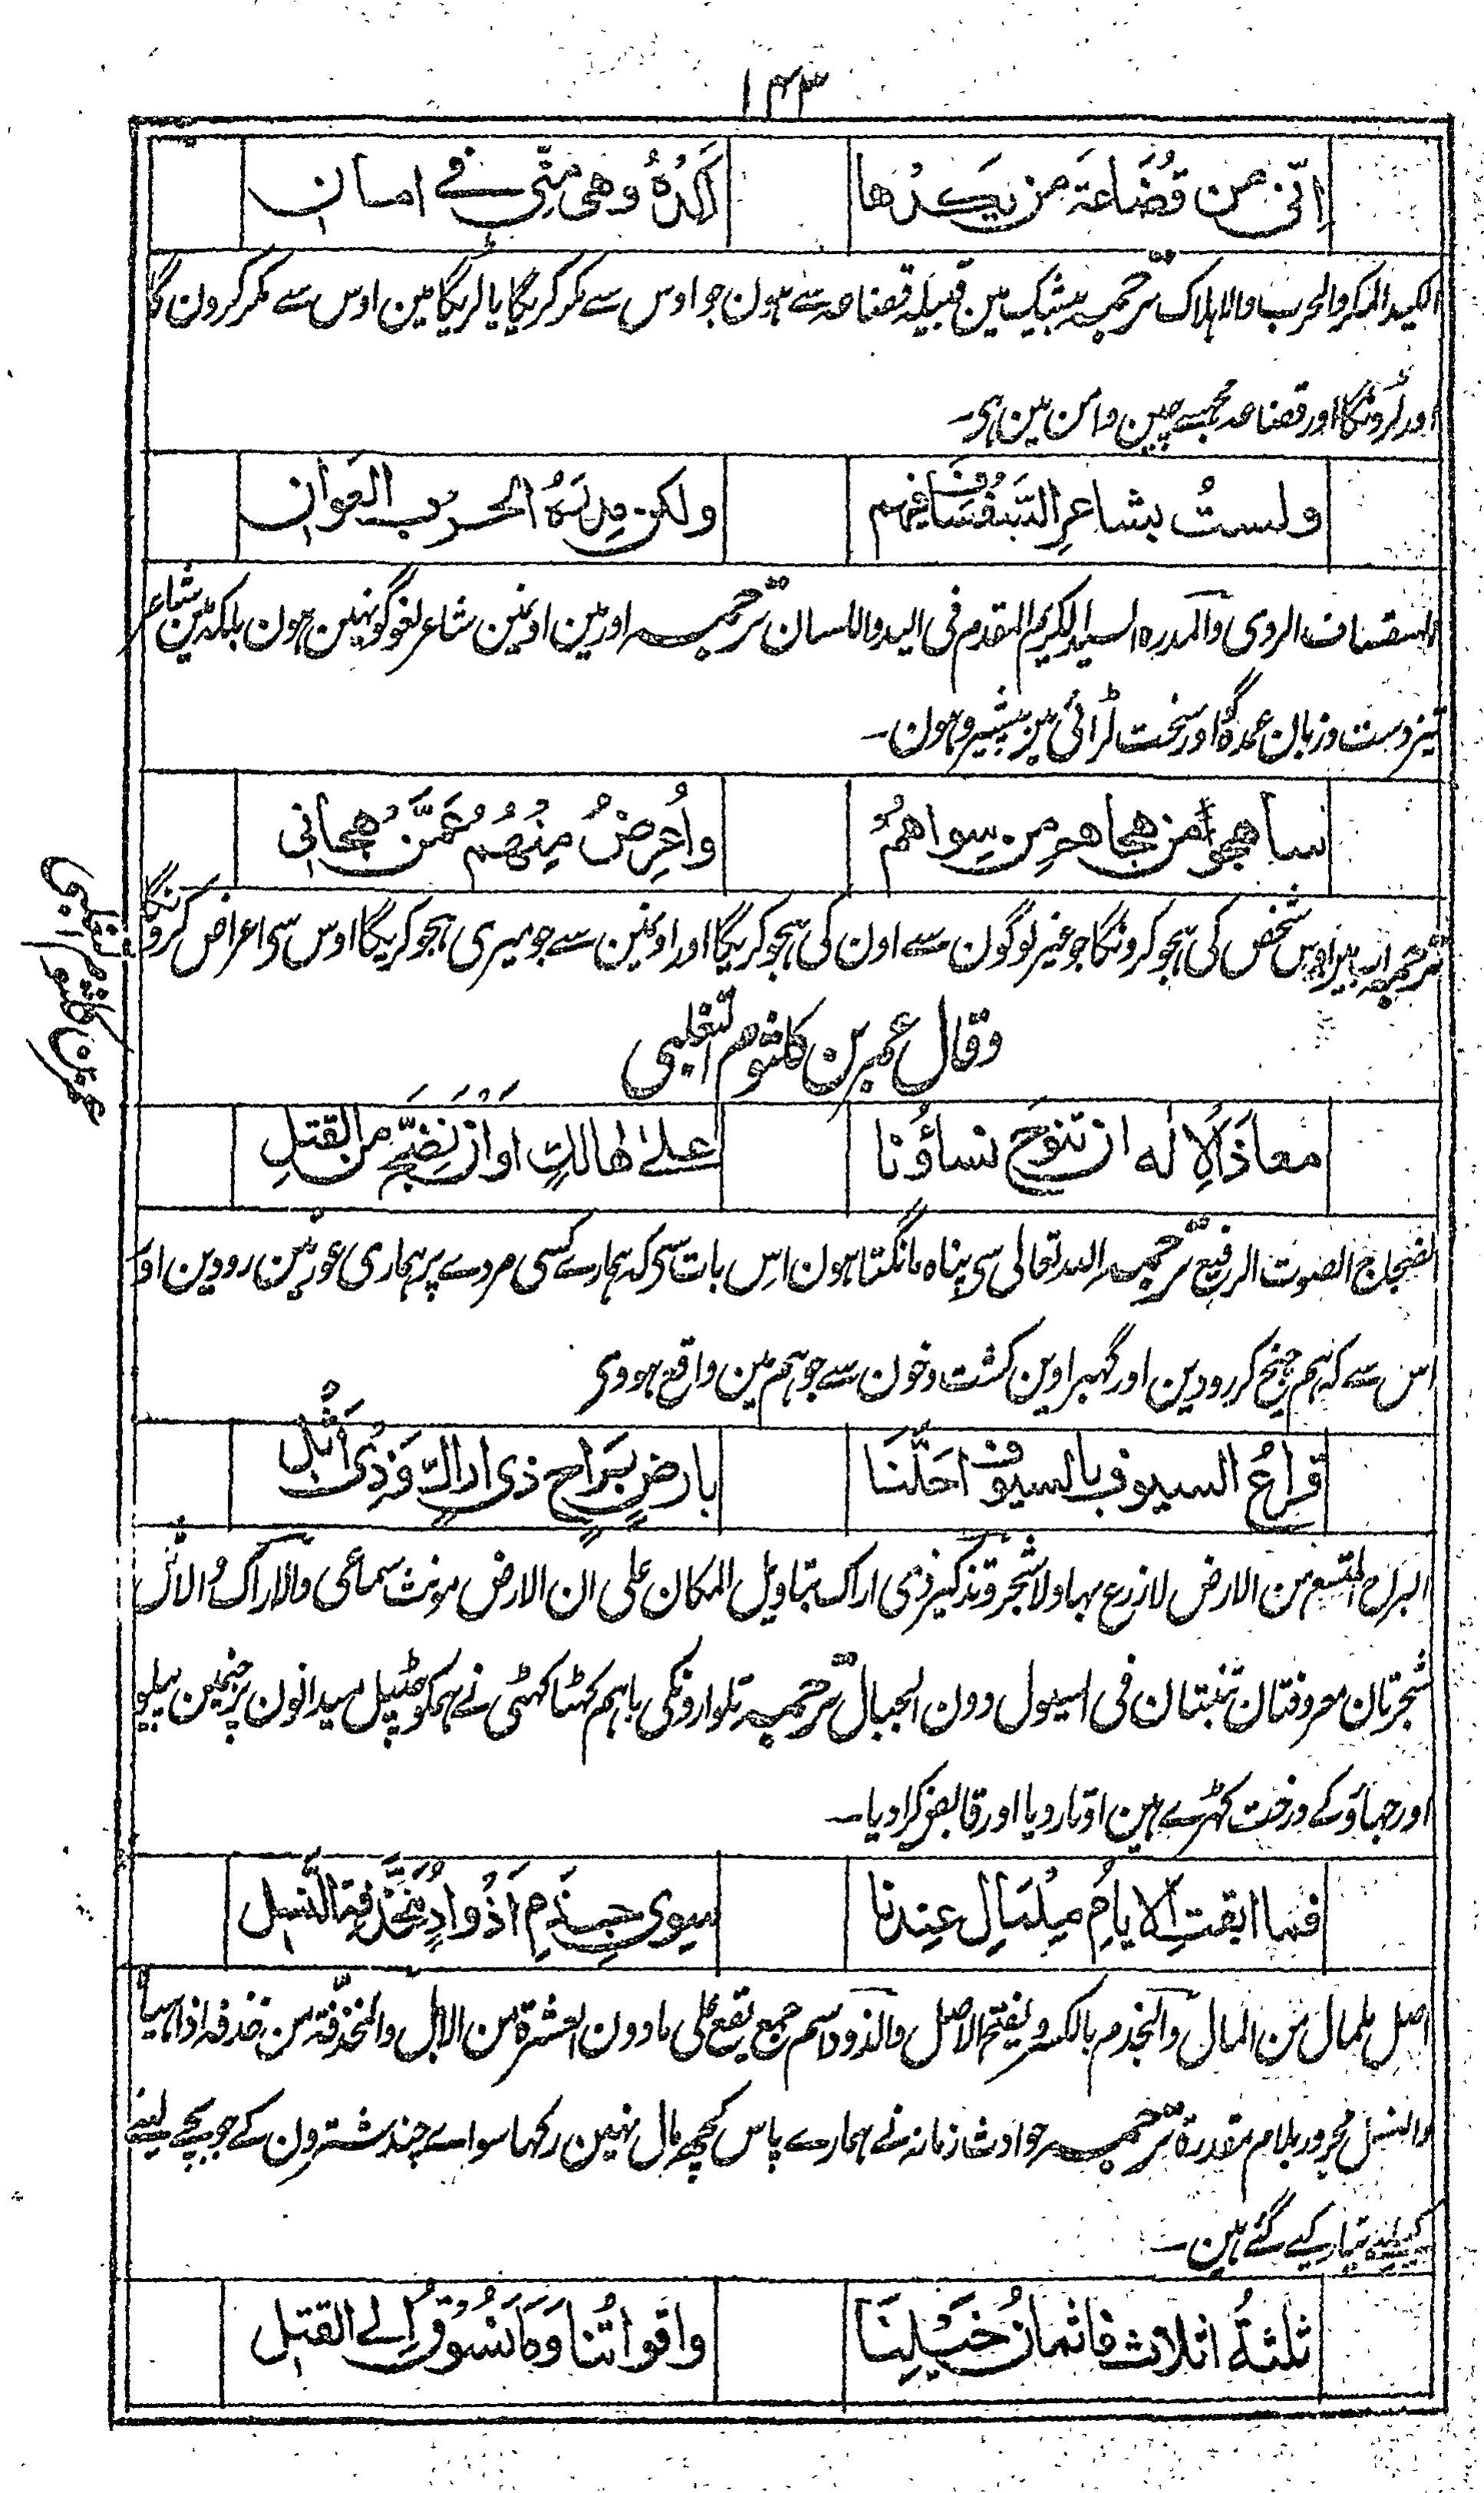 ۱۴۳
اِنّی من قُضَاعَۃَ من یَکِدْھا اَکِدْہُ وھی منّی فی امان
الکید المکر والحرب والاہلاک ترجمہ بیشک مین قبیلہ قضاعہ سے ہون جو اوس سے مکر کریگا یا لڑیگا مین اوس سے مکر کرون گا
اور لڑونگا اور قضاعہ مجہسے چین وامن مین ہی۔
ولستُ بشاعرِ السَّفْسَافِ فیھم ولکن مِدرَہُ الحربِ العَوانِ
السفساف الردی والمدرہ السید الکریم المتقدم فی الید واللسان ترجمہ اور مین اونمین شاعر لغو گو نہین ہون بلکہ مین شاعر
تیز دست وزبان عمدہ گو اور سخت لڑائی مین پیشرو ہون۔
ساھجو من ھجاھم من سِواھمُ واُعرِضُ مِنْھُمُ عَمَّنْ ھجانی
ترجمہ اب مین اوس شخص کی ہجو کرونگا جو غیر لوگون سے اون کی ہجو کریگا اور اونمین سے جو میری ہجو کریگا اوس سی اعراض کرونگا
عمرو بن کلثوم التغلبی
وقال عمرو بن کلثوم التغلبی
معاذَ الاِلٰہ ان تنوحَ نساؤُنا علیٰ ھالکٍ اَوْ اَنْ نَضِجَّ من القتلِ
الضجاج الصوت الرفیع ترجمہ اللہ تعالی سی پناہ مانگتا ہون اس بات سی کہ ہمارے کسی مردے پر ہماری عورتین رودین اور
اس سے کہ ہم چیخ کر رودین اور گہبراوین کشت وخون سے جو ہم مین واقع ہووی
قراعُ السیوف بالسیوف احَلَّنَا بارضٍ بَرَاحٍ ذی اراکٍ وَذِی اَثْلِ
البراح المتسع من الارض لا زرع بہا ولا شجر وتذکیر ذی اراک بتاویل المکان علی ان الارض مونث سماعی والاراک والاثل
شجرتان معروفتان تنبتان فی السیول دون الجبال ترجمہ تلوارونکی باہم کہٹا کہٹی نے ہمکو چٹیل میدانون پر جنمین پیلو
اور جہاؤ کے درخت کہڑے ہین اوتار دیا اور قابض کرا دیا۔
فما ابقتِ الایامُ مِلمَالِ عِندنا سِوی جِذمِ اَذْوادٍ مُحَذَّفۃِ النَّسلِ
اصل ملمال من المال والجذم بالکسر ویفتح الاصل والذود اسم جمع یقع علی ما دون العشرۃ من الابل والمحذّفۃ من حذفہ اذا ہیأ
والنسل مجرور بلام مقدرۃ ترجمہ حوادث زمانہ نے ہمارے پاس کچھ مال نہین رکہا سواے چند شترون کے جو بچے لینے
کیلئے تیار کیے گئے ہین۔
ثلثۃُ اثلاث فاثمانُ خَیْلِنَا واقواتُنا وَمَا نَسُوقُ اِلی القتلِ